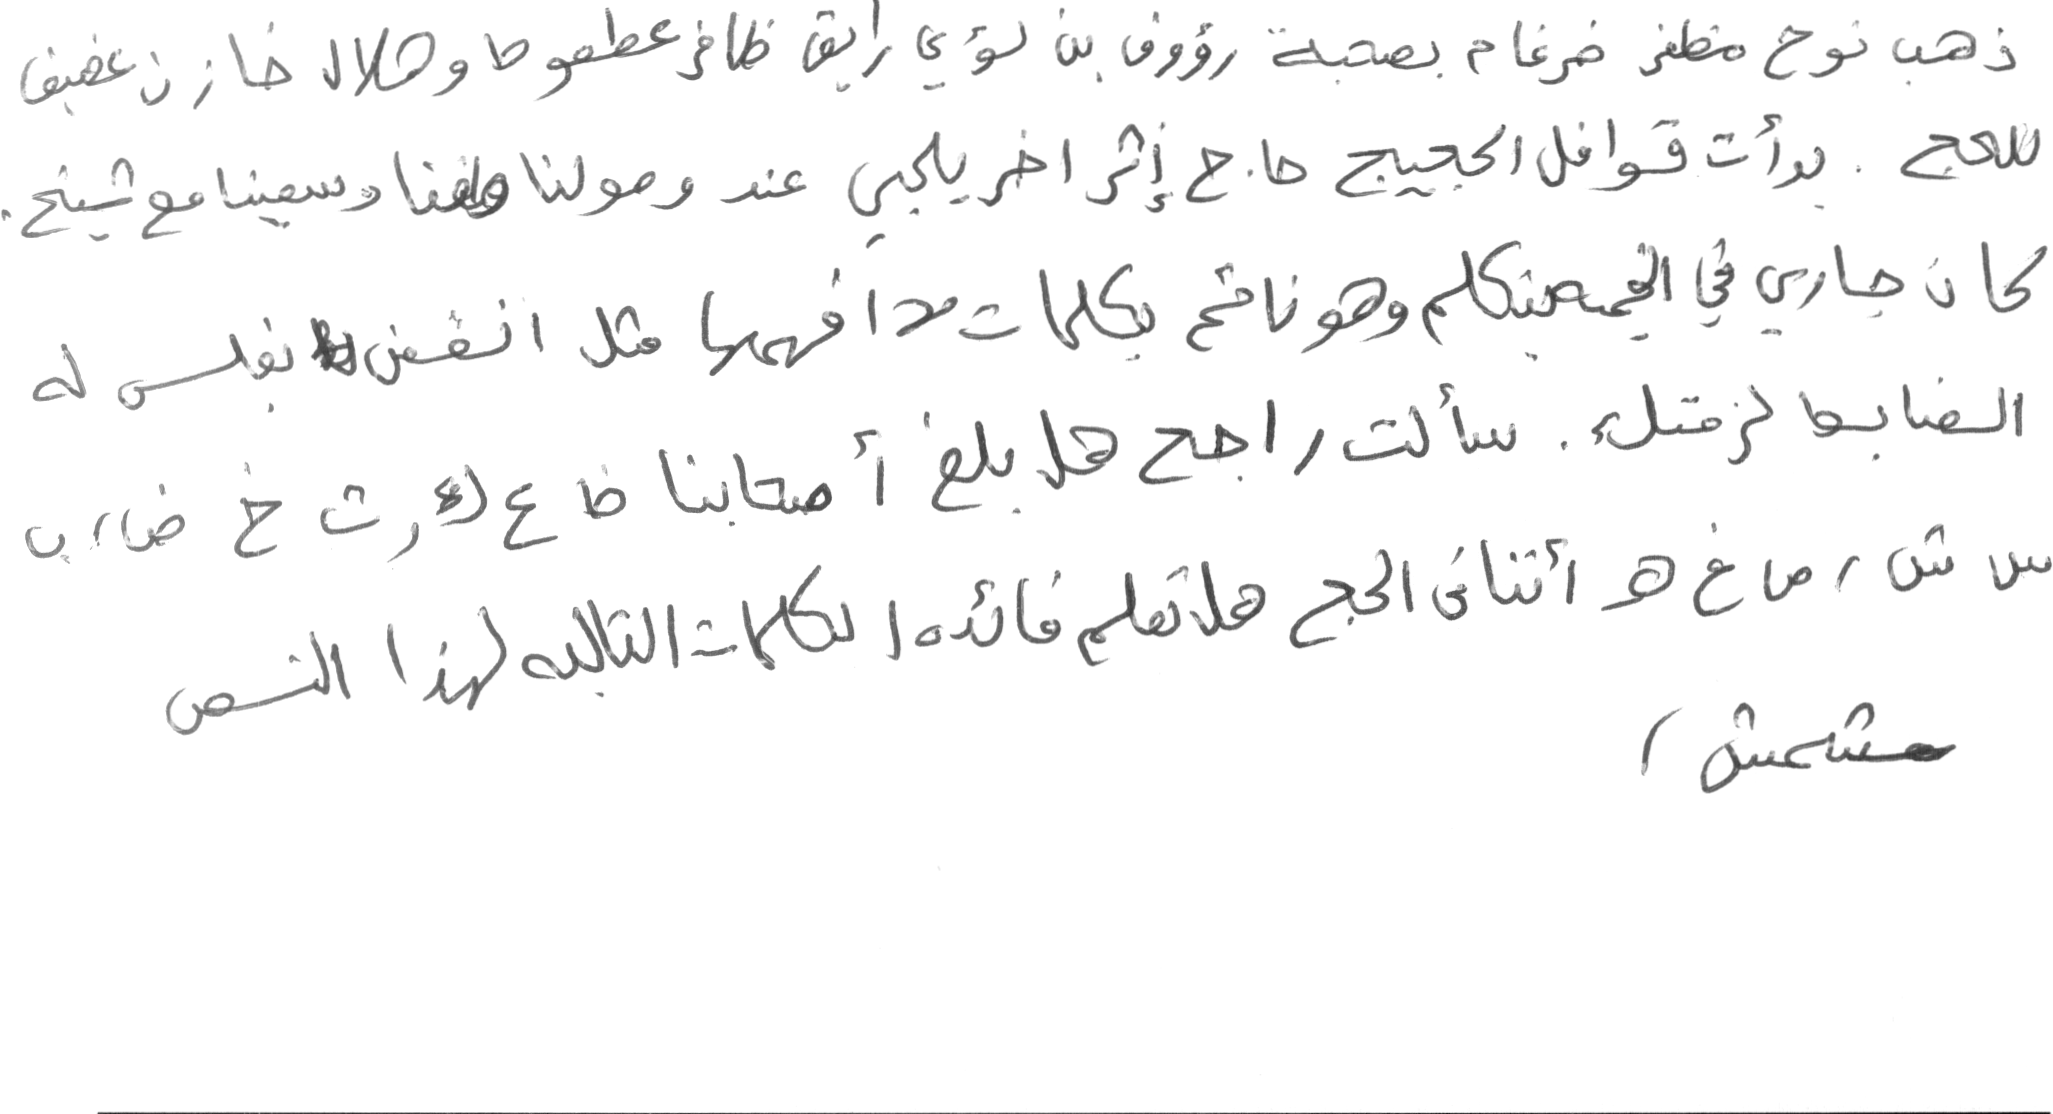 ذهب نوح مظفر ضرغام بصحبة رؤوف بن لؤي رايق ظافر عطعوط وهلال خازن عفيف
للحج . بدأت قوافل الحجيج ط . ح إثر اخر يلجئ عند وصولنا هلفنا وسعينا مع شيخ .
كان جاري في الخيمه يتكلم وهو نائم بكلمات لا افهمها مثل انقض بفلس له
الضابط لزمتك . سألت راجح هل بلغ أصحابنا ظ ع ك ر ث خ ضارب
س ش ر ص غ هـ أثناء الحج هل تعلم فائده الكلمات التاليه لهذا النص
مشمش ر